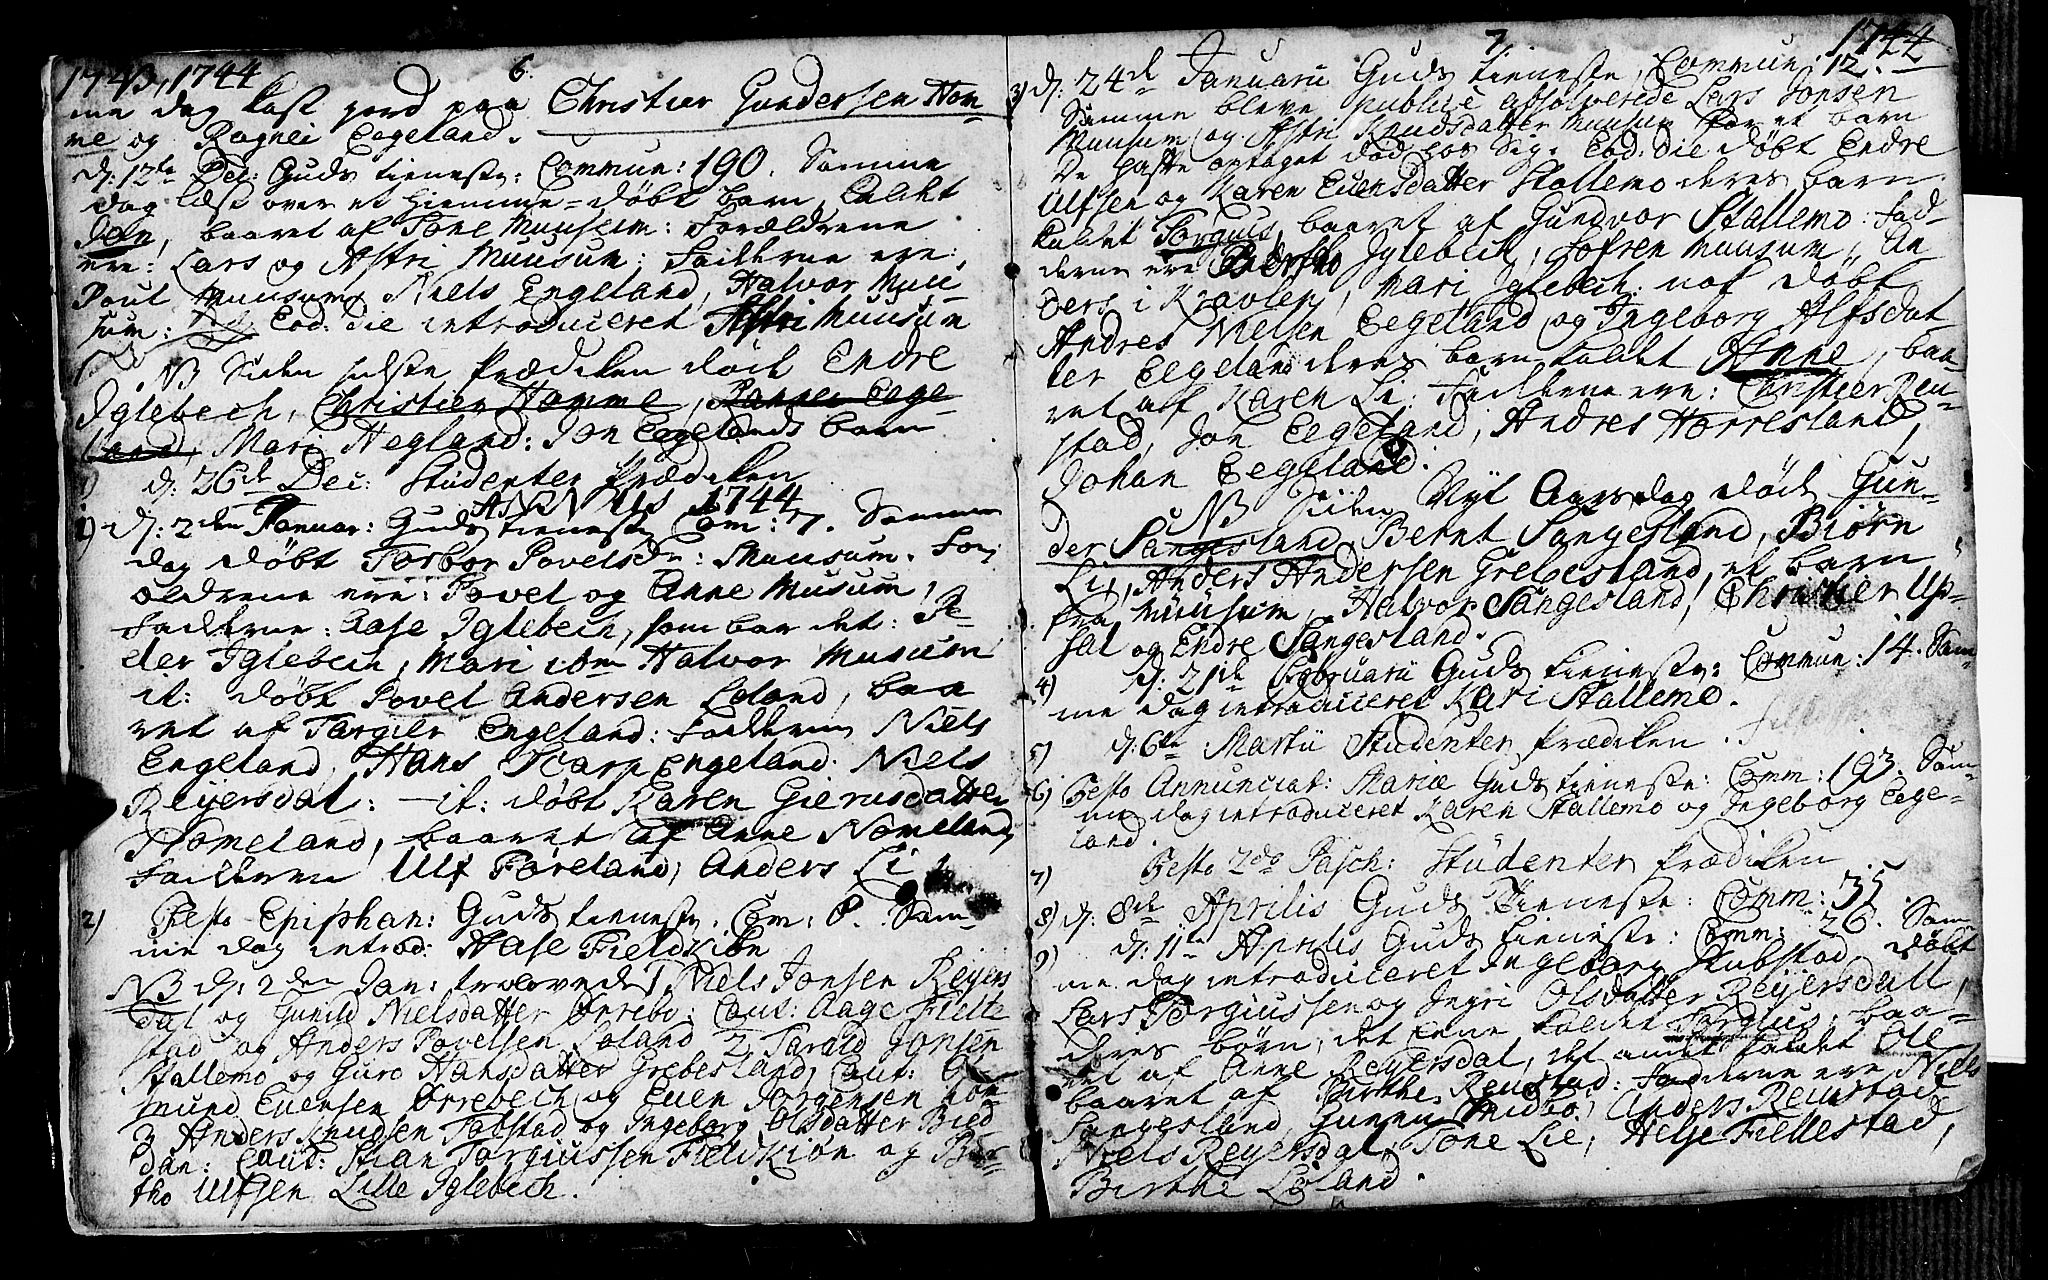 1743, 1744
6.
me dag kast jord paa Christier Gundersen Hom-
me og Ragnei Eegeland.
d: 12te Dec: Guds tieneste: Commun: 190. Samme
dag læst over et Hiemme-døbt barn, kaldt
Jon, baaret af Tone Muusum: Forældrene
ere: Lars og Astri Muusum: Fadderne ere:
Poul Muusum, Niels Engeland, Halvor Muu-
sum: Eod: die introduceret Astri Muusum
NB Siden sidste Prædiken døde Endre
Iglebech, Christier Homme, Ragnei Eege-
land, Mari Hegland: Jon Eegelands barn
d: 26de Dec: Studenter Prædiken
ANNUS 1744
1) d: 2den Januar: Guds tieneste Com: 7. Samme
dag døbt Torbor Povelsdr: Muusum. For-
ældrene ere: Povel og Anne Musum,
Fadderne: Aase Iglebech, som bar det: Pe-
der Iglebech, Mari ibm Halvor Musum
it: døbt Povel Andersen Loland, baa
ret af Torgier Engeland: Fadderne Niels
Engeland, Hans Engeland: Niels
Reijersdal: - it: døbt Karen Gierusdatter
Homeland, baaret af Anne Nomeland,
Fadderne Ulf Føreland, Anders Li
2) Festo Epiphan: Guds tieneste. Com: 8. Sam-
me dag introd: Aase Fieldkiøn
NB d: 2den Jan: trolovede 1 Niels Jonsen Reijers
dal og Gunild Nielsdatter Orrebo: Caut: Aage Fieltz
stad og Anders Povelsen Loland 2 Tarald Jonsen
Stallemo og Guro Hansdatter Grebesland, Caut: O-
mund Evensen Orrebech og Even Jørgensen
3 Anders Knudsen Tobstad og Ingeborg Olsdatter Bied-
dan: Caut: Stian Torgiussen Fieldkiøn og Bør-
tho Ulfsen Lille Iglebech.
7.
1744
3) d: 24de Januarii Guds tieneste, Commun: 12.
Samme bleve publice absolverede Lars Jonsen
Muusum og Astri Knudsdatter Muusum for et barn
De hafte optaget død hos Sig. Eod: die døbt Endre
Ulfsen og Karen Evensdatter Stallemo deres barn
kaldet Torgius, baaret af Gundvor Stallemo: Fad-
derne ere Bertho Iglebech, Sofren Muusum, An
ders i Kravlen, Mari Iglebech. nof døbt
Andres Nielsen Eegeland og Ingeborg Alfsdat-
ter Eegeland deres barn kaldet Anne, baa-
ret aff Karen Li: Fadderne ere: Christier Reu-
stad, Jon Eegeland, Andres Horresland,
Johan Eegeland.
NB Siden Nyt Aarsdag døde Gun-
der Sangesland, Bernt Sangesland, Biørn
Li, Anders Andersen Grebesland, et barn
fra Muusum, Halvor Sangesland, Christier Up-
sal og Endre Sangesland.
4) d: 21de Februarii Guds tieneste: Commun: 14. Sam-
me dag introduceret Kari Stallemo.
5) d: 6te Martii Studenter Prædiken.
6) Festo Annunciat: Mariæ Guds tieneste: Comm: 193. Sam-
me dag introduceret Karen Stallemo og Ingeborg Eege-
land.
7) Festo 2do Pasch: Studenter Prædiken
8) d: 8de Aprilis Guds Tieneste: Comm: 35.
9) d: 11te Aprilis Guds tieneste: Comm: 26. Sam
me dag introduceret Ingeborg Skubstad døbt
Lars Torgiussen og Ingri Olsdatter Reijersdall,
deres børn, det eene kaldet Torgius, baa-
ret af Anne Reyersdal, det andet kaldet Ole
baaret af Birthe Reustad: Fadderne ere Niels
Sangesland, Gunnu Midbo, Anders Reustad
Niels Reyersdal, Tone Lie, Helje Fiellestad,
Birthe Loland.